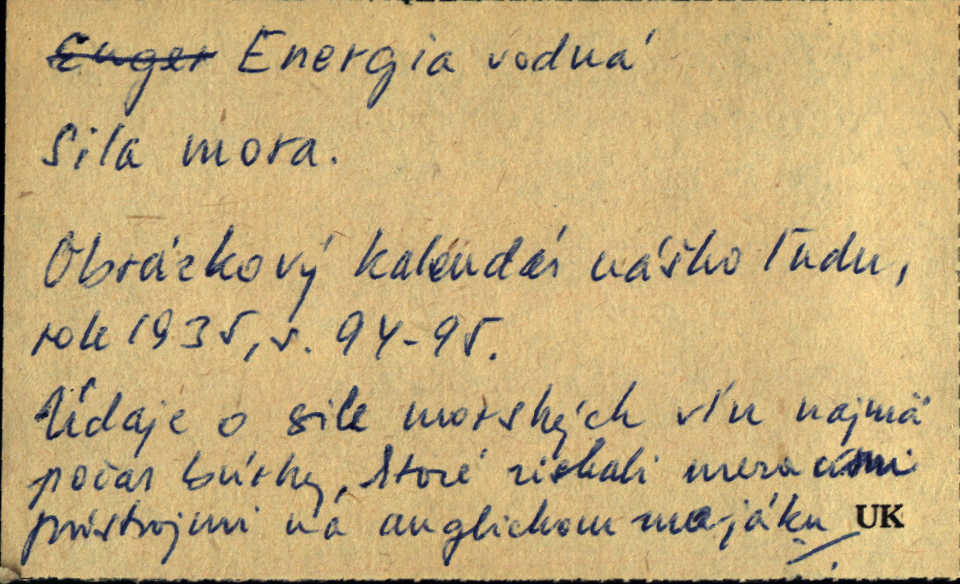 Enger Energia vodná
Sila mora.
Obrázkový kalendár nášho ľudu,
rok 1935, s. 94-95.
Údaje o sile morských vĺn najmä
počas búrky, ktoré získali meracími
prístrojmi na anglickom majáku UK